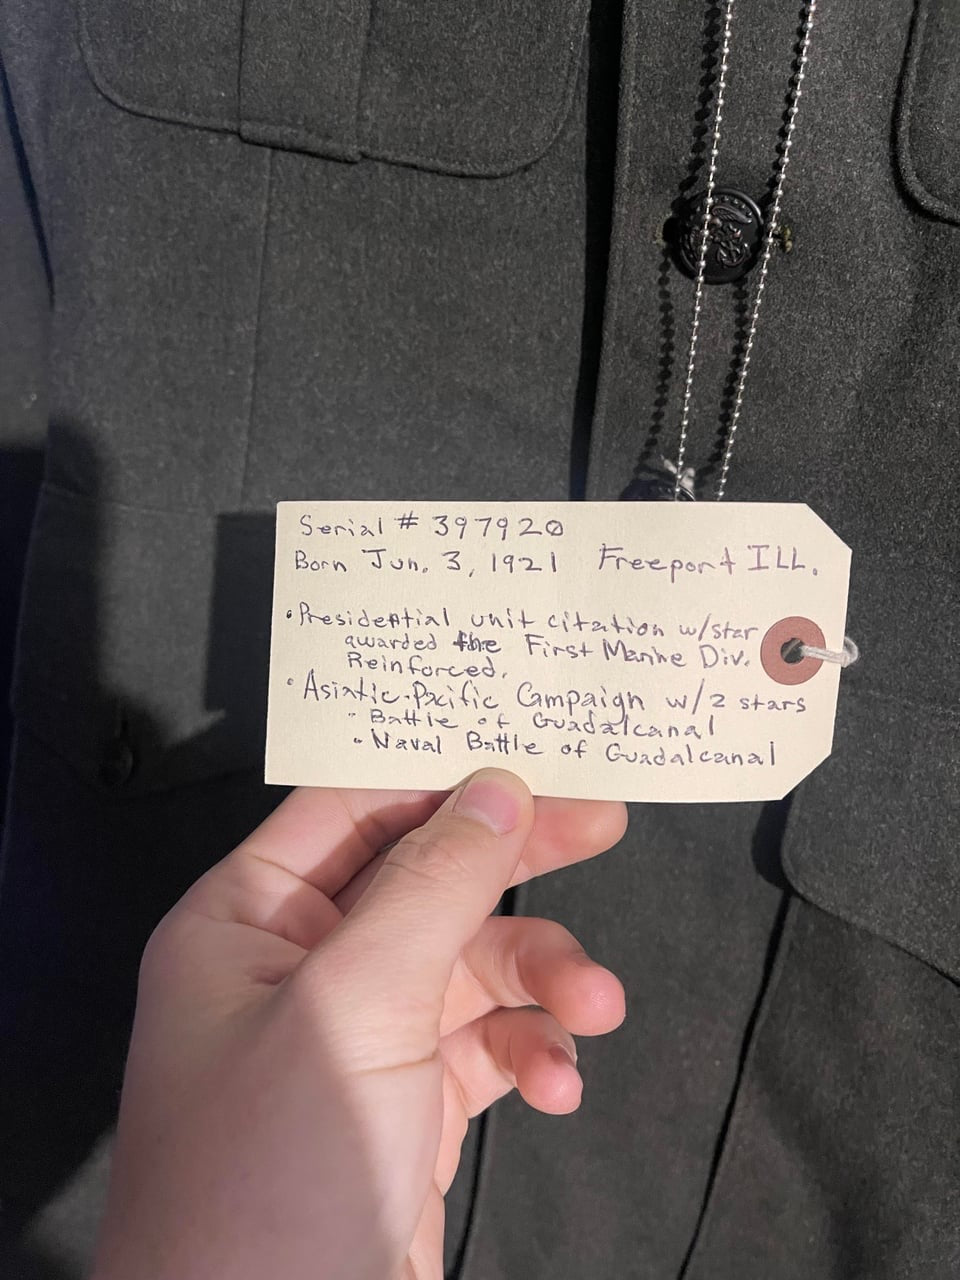 Serial # 397920
Born Jun. 3, 1921 Freeport ILL.
• Presidential unit citation w/star
awarded the First Marine Div.
Reinforced.
• Asiatic-Pacific Campaign w/2 stars
- Battle of Guadalcanal
- Naval Battle of Guadalcanal